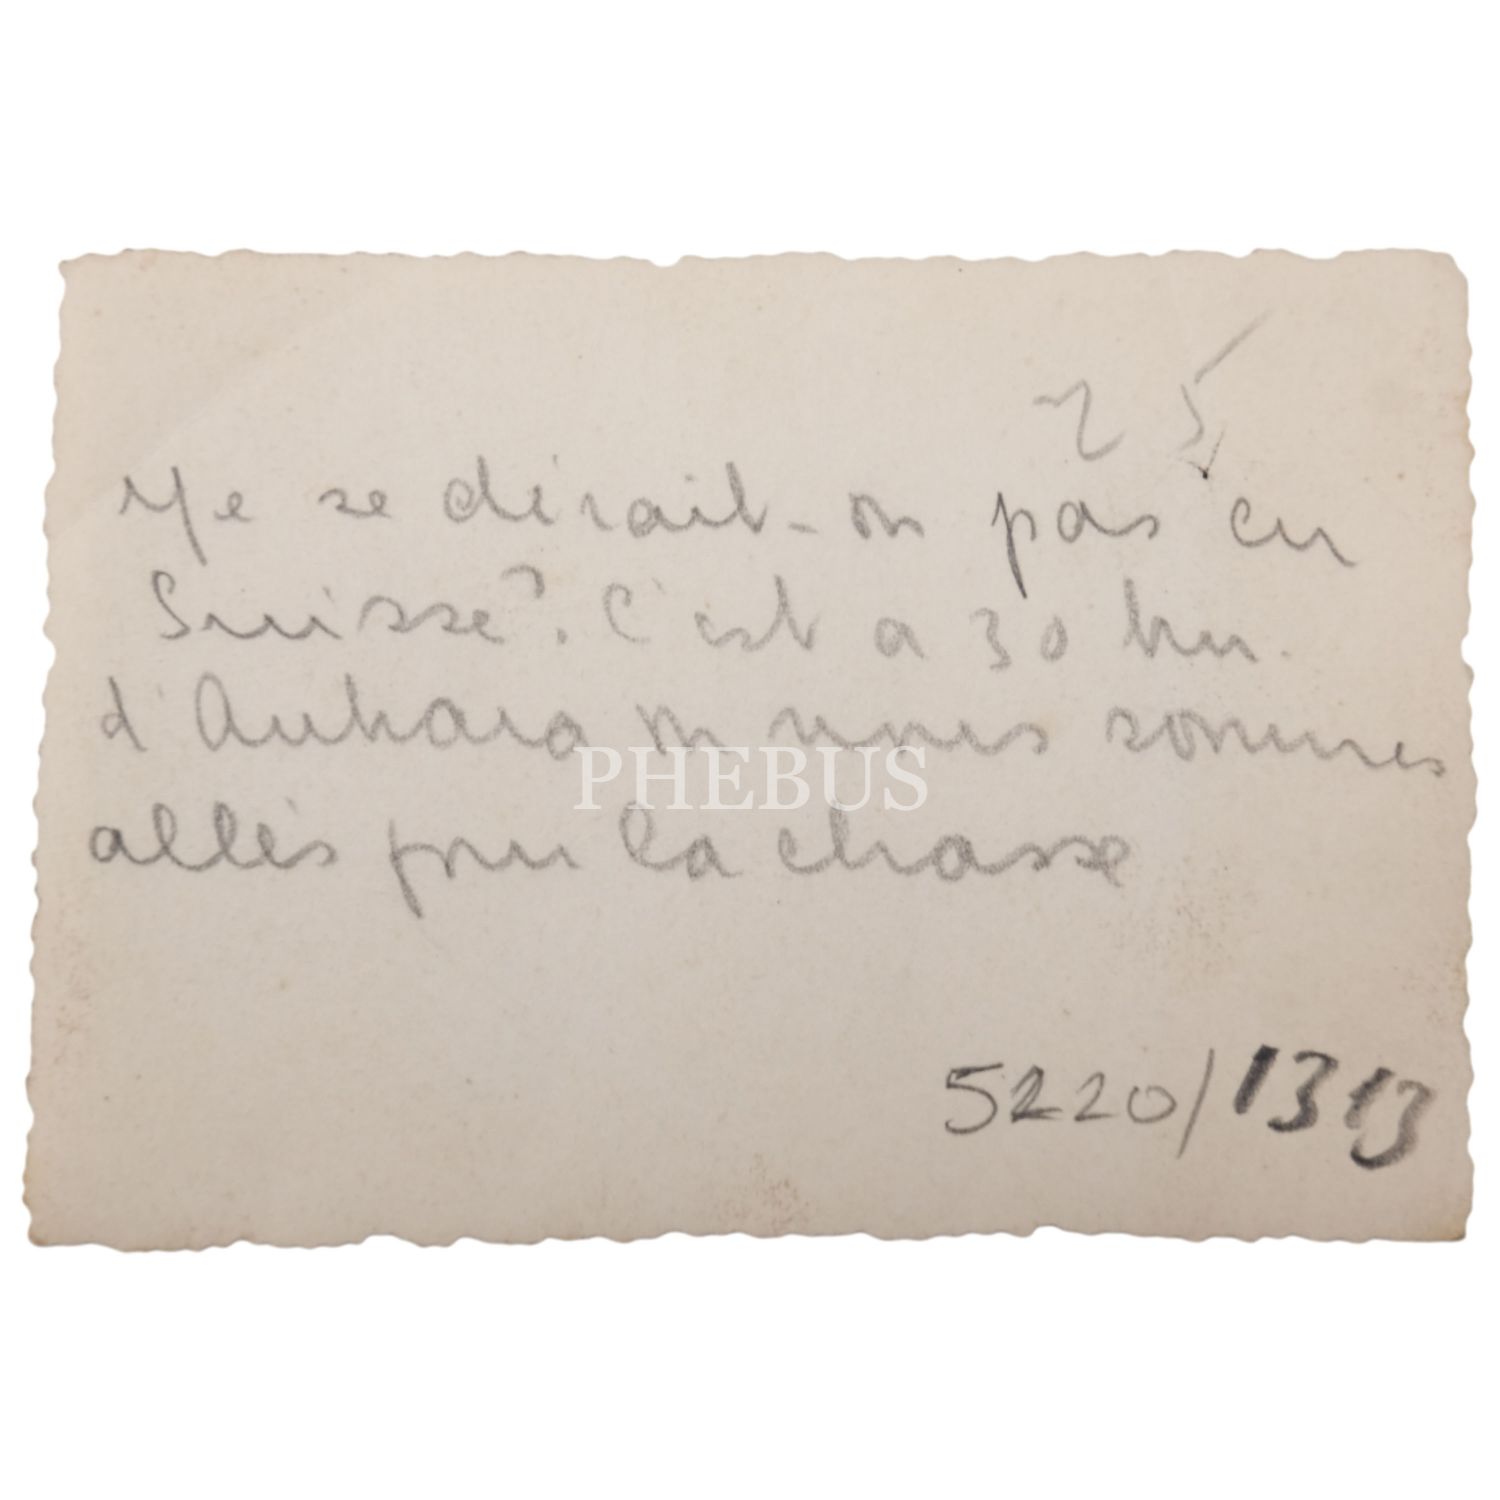 25
Ne se dirait-on pas en
Suisse?. C'est a 30 km.
d'Ankara on nous sommes
allés pour la chasse
PHEBUS
5220/1313